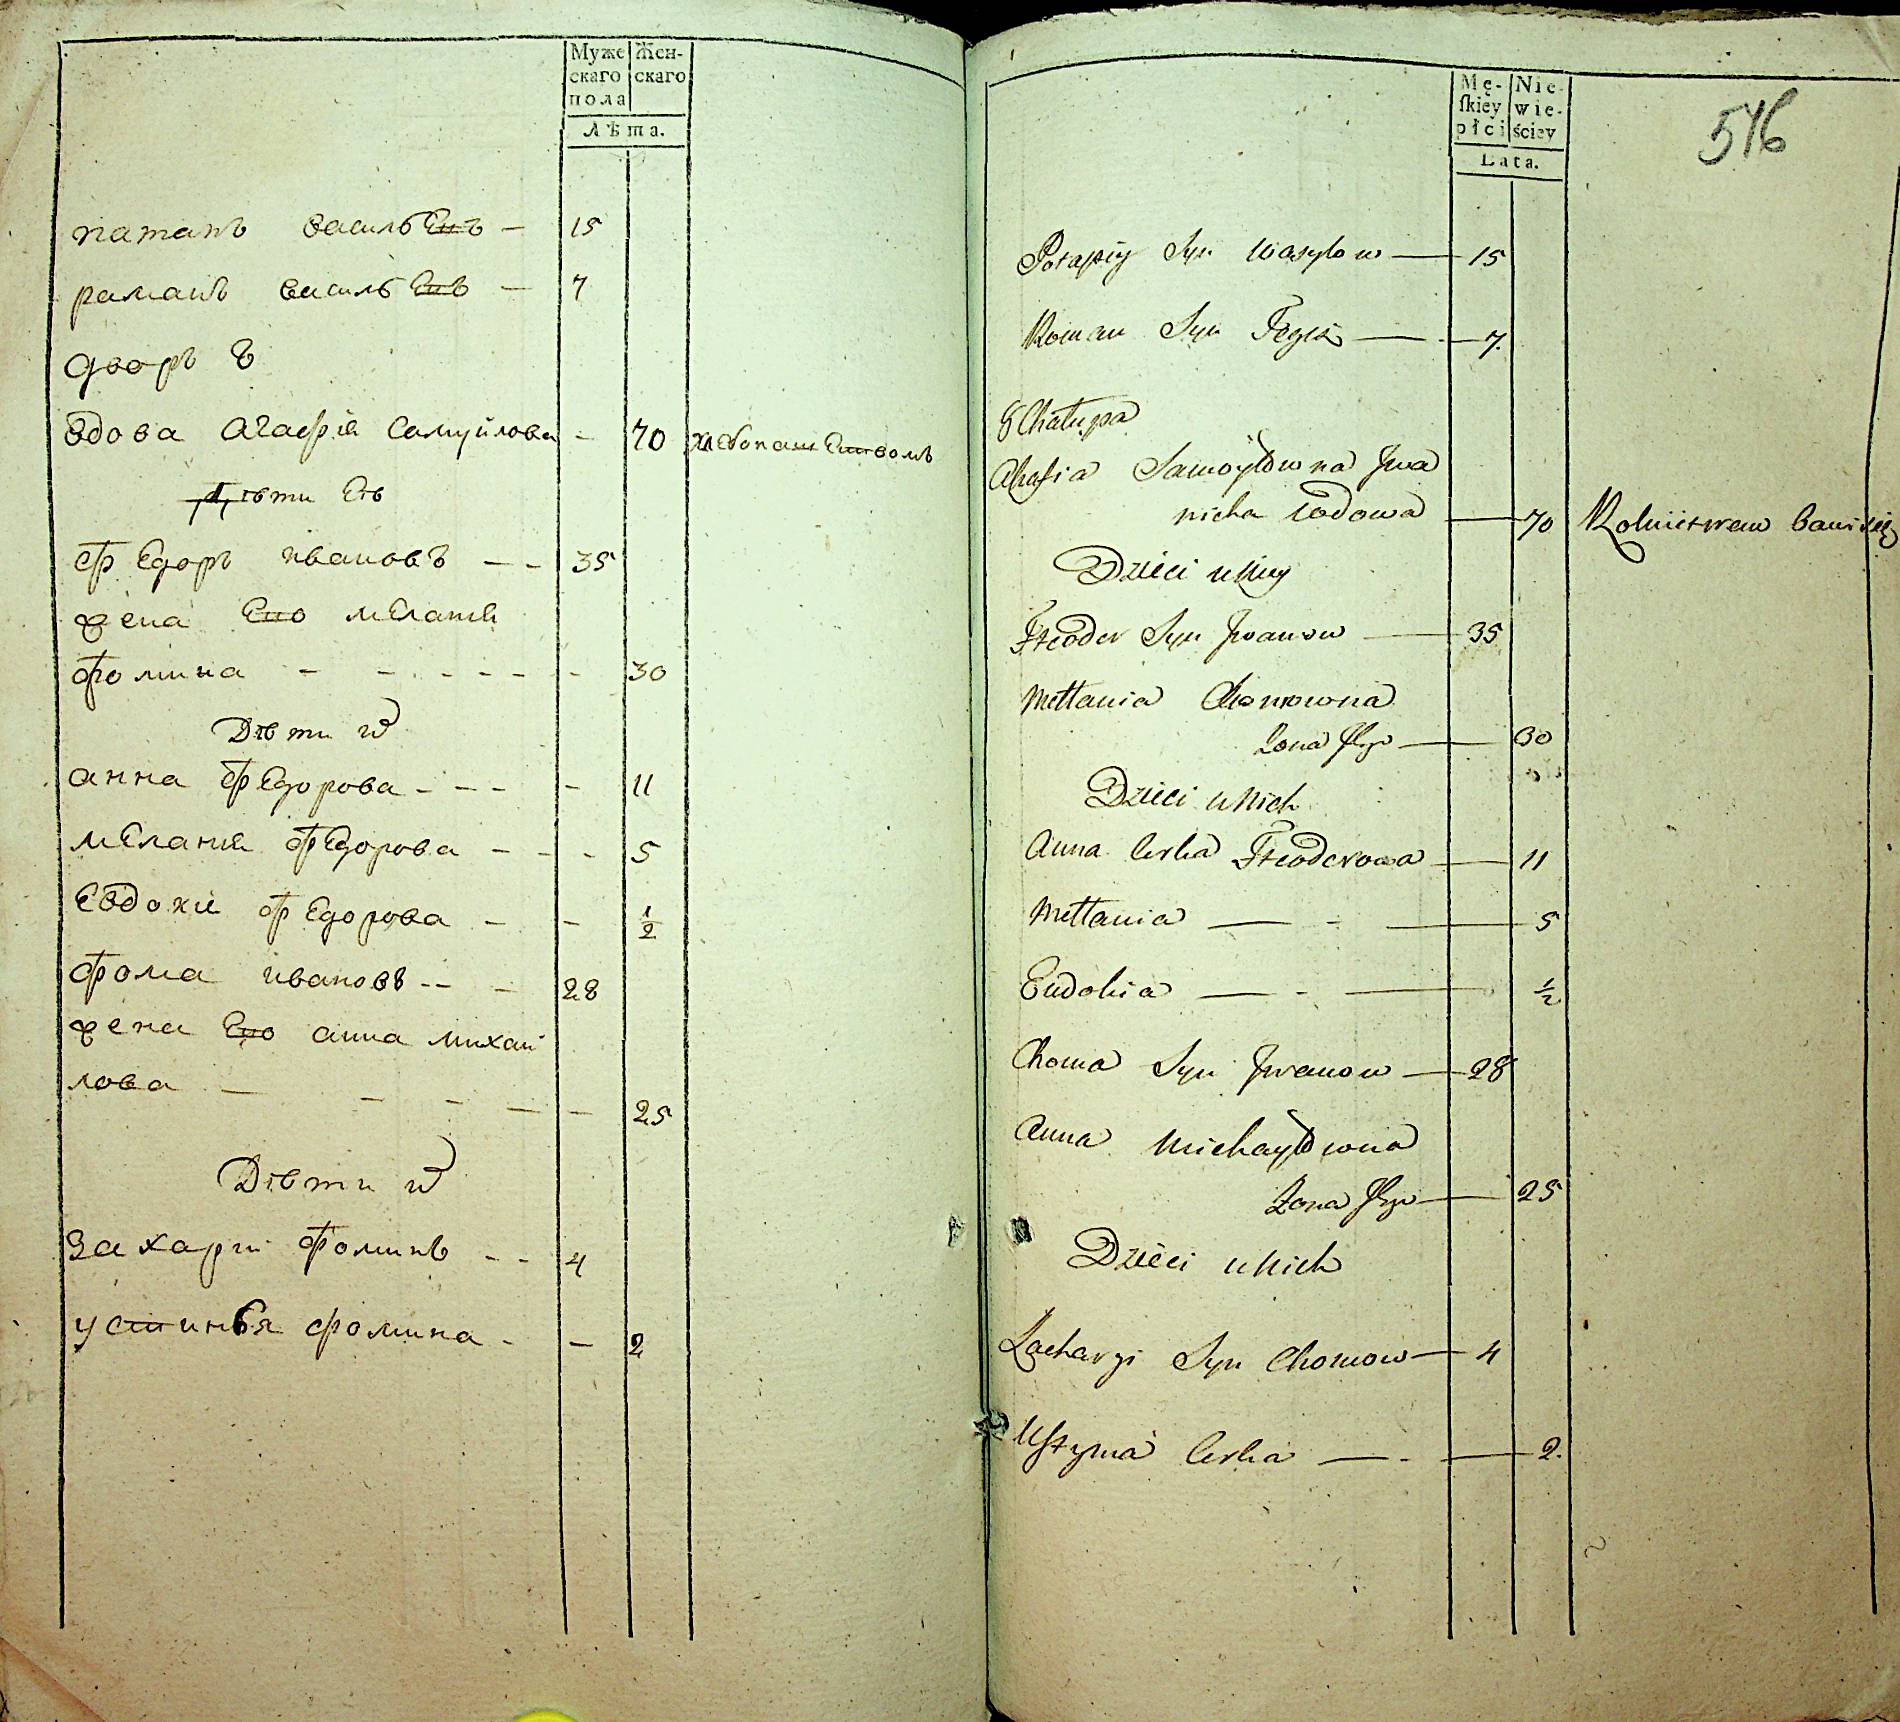 Муже Жен-
скаго скаго
пола
Лѣта.
патапъ василь Евъ — 15
раманъ василь Евъ — 7
дворъ 8
вдова агафія самуйлова - 70 хлебопашЕствомъ
Дѣти Еѣ
фЕдоръ ивановъ - - 35
жена Его мЕланія
фомина - - - - - - - 30
Дѣти их
анна фЕдорова - - - - 11
мЕланія фЕдорова - - - 5
Евдокія фЕдорова - - 1/2
фома ивановъ - - - 28
жена Его анна михаи
лова — - - — — 25
Дѣти их
захарій фоминъ - - 4
устинья фомина - — 2
Mę- Nie-
skiey wie-
płci ściey
Lata.
546
Potapiy Syn Wasylow — 15
Roman Syn — 7.
8 Chałupa
Ahafia Samoyłowna Iwa
nicha Wdowa — 70 Rolnictwem bawi się
Dzieci u Niey
Fteoder Syn Iwanow — 35
Mełłania Chomowna
Żona Jego — 30
Dzieci u Nich
Anna Corka Fteoderowa — 11
Mełłania — - — 5
Eudokia — - — 1/2
Choma Syn Iwanow — 28
Anna Michayłowna
Żona Jego — 25
Dzieci u Nich
Zacharyi Syn Chomow — 4
Ustynia Corka — - — 2.